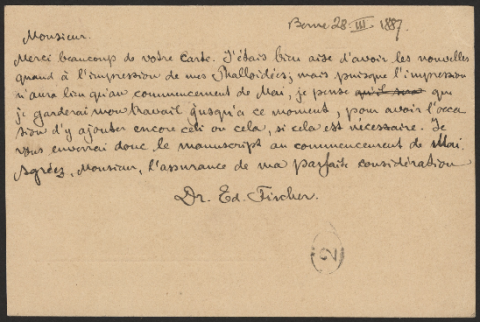 Berne 28. III. 1887.
Monsieur.
Merci beaucoup de votre Carte. J'étais bien aise d'avoir les nouvelles
quand à l'impression de mes Phalloïdées; mais puisque l'impression
n'aura lieu qu'au commencement de Mai, je pense que
je garderai mon travail jusqu'à ce moment, pour avoir l'occa
sion d'y ajouter encore céli ou cela, si cela est nécessaire. Je
vous enverrai donc le manuscript au commencement de Mai.
Agréez, Monsieur, l'assurance de ma parfaite considération
Dr. Ed. Fischer.
2